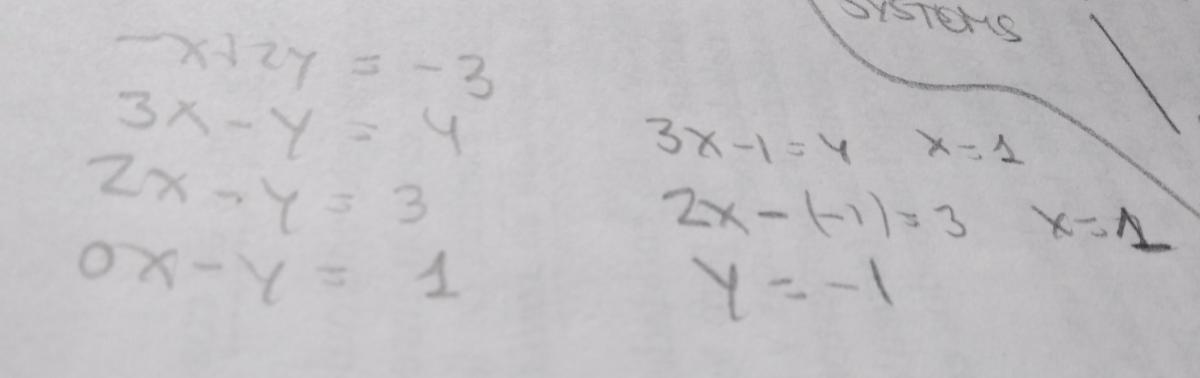 SYSTEMS
-x+2y = -3
3x - y = 4
2x - y = 3
0x - y = 1
3x-1=4 x=1
2x-(-1)=3 x=1
y=-1